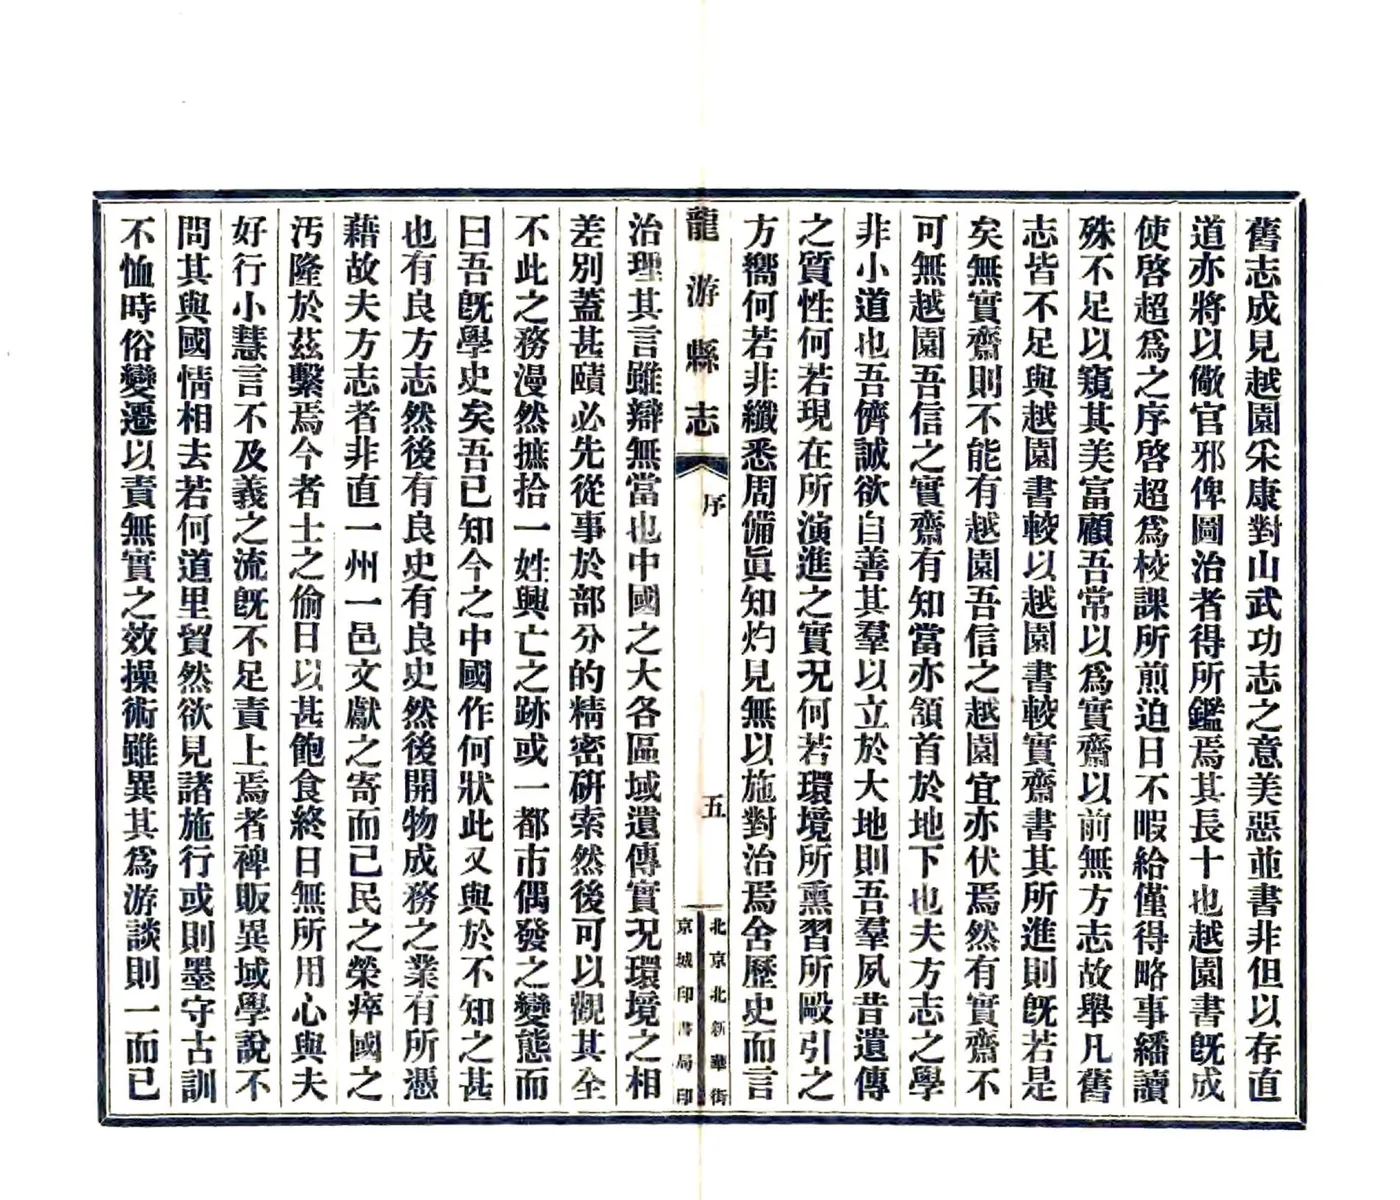 舊志成見越園宋康對山武功志之意美惡並書非但以存直
道亦將以儆官邪俾圖治者得所鑑焉其長十也越園書旣成
使啓超爲之序啓超爲校課所煎迫日不暇給僅得略事繙讀
殊不足以窺其美富顧吾常以爲實齋以前無方志故舉凡舊
志皆不足與越園書較以越園書較實齋書其所進則旣若是
矣無實齋則不能有越園吾信之越園宜亦伏焉然有實齋不
可無越園吾信之實齋有知當亦頷首於地下也夫方志之學
非小道也吾儕誠欲自善其羣以立於大地則吾羣夙昔遺傳
之質性何若現在所演進之實况何若環境所熏習所毆引之
方嚮何若非纖悉周備眞知灼見無以施對治焉舍歷史而言
龍游縣志
序
五
北京北新華街
京城印書局印
治理其言雖辯無當也中國之大各區域遺傳實况環境之相
差別蓋甚賾必先從事於部分的精密硏索然後可以觀其全
不此之務漫然摭拾一姓興亡之跡或一都市偶發之變態而
曰吾旣學史矣吾已知今之中國作何狀此又與於不知之甚
也有良方志然後有良史有良史然後開物成務之業有所憑
藉故夫方志者非直一州一邑文獻之寄而已民之榮瘁國之
汚隆於茲繫焉今者士之偷日以甚飽食終日無所用心與夫
好行小慧言不及義之流旣不足責上焉者裨販異域學說不
問其與國情相去若何道里貿然欲見諸施行或則墨守古訓
不恤時俗變遷以責無實之效操術雖異其爲游談則一而已